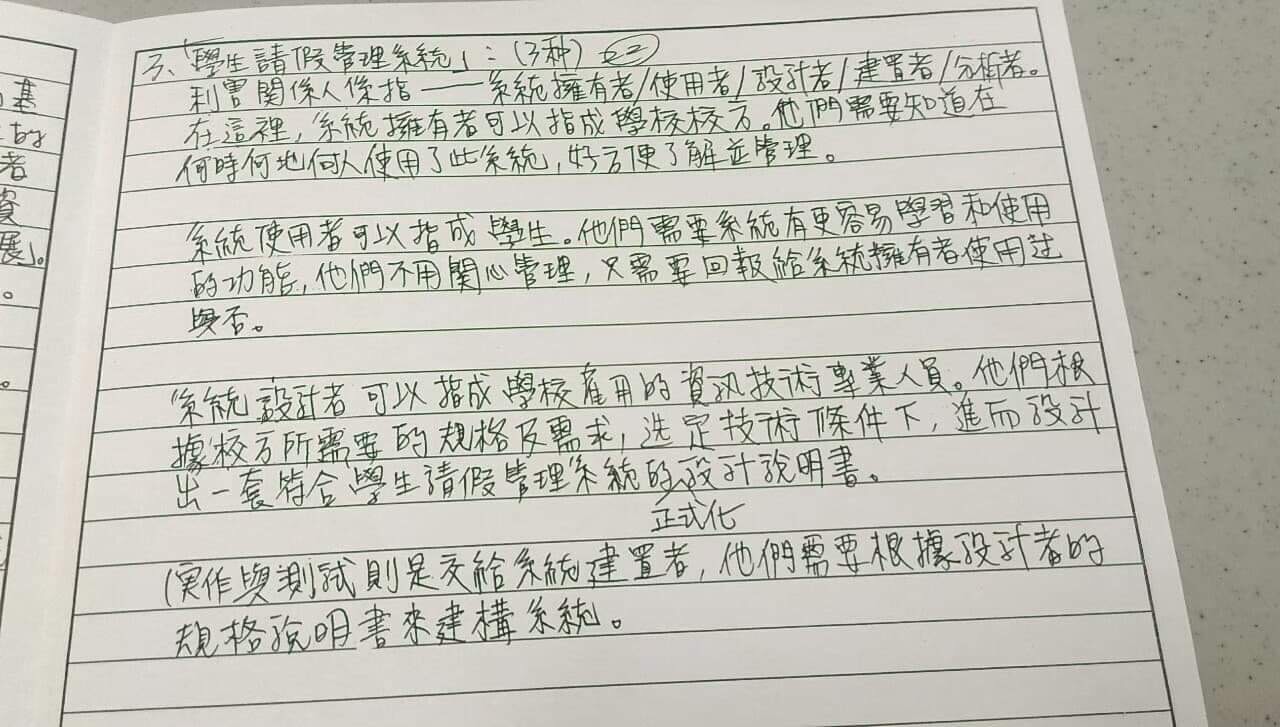 3、「學生請假管理系統」：(3种) 6-2
利害關係人係指——系統擁有者/使用者/設計者/建置者/分析者。
在這裡，系統擁有者可以指成學校校方。他們需要知道在
何時何地何人使用了此系統，好方便了解並管理。
系統使用者可以指成學生。他們需要系統有更容易學習和使用
的功能，他們不用關心管理，只需要回報給系統擁有者使用过
與否。
系統設計者可以指成學校雇用的資訊技術專業人員。他們根
據校方所需要的規格及需求，选定技術條件下，進而設計
出一套符合學生請假管理系統的設計說明書。
正式化
(實作與測試則是交給系統建置者，他們需要根據設計者的
規格說明書來建構系統。
基
的
者
資
展」。
。
。